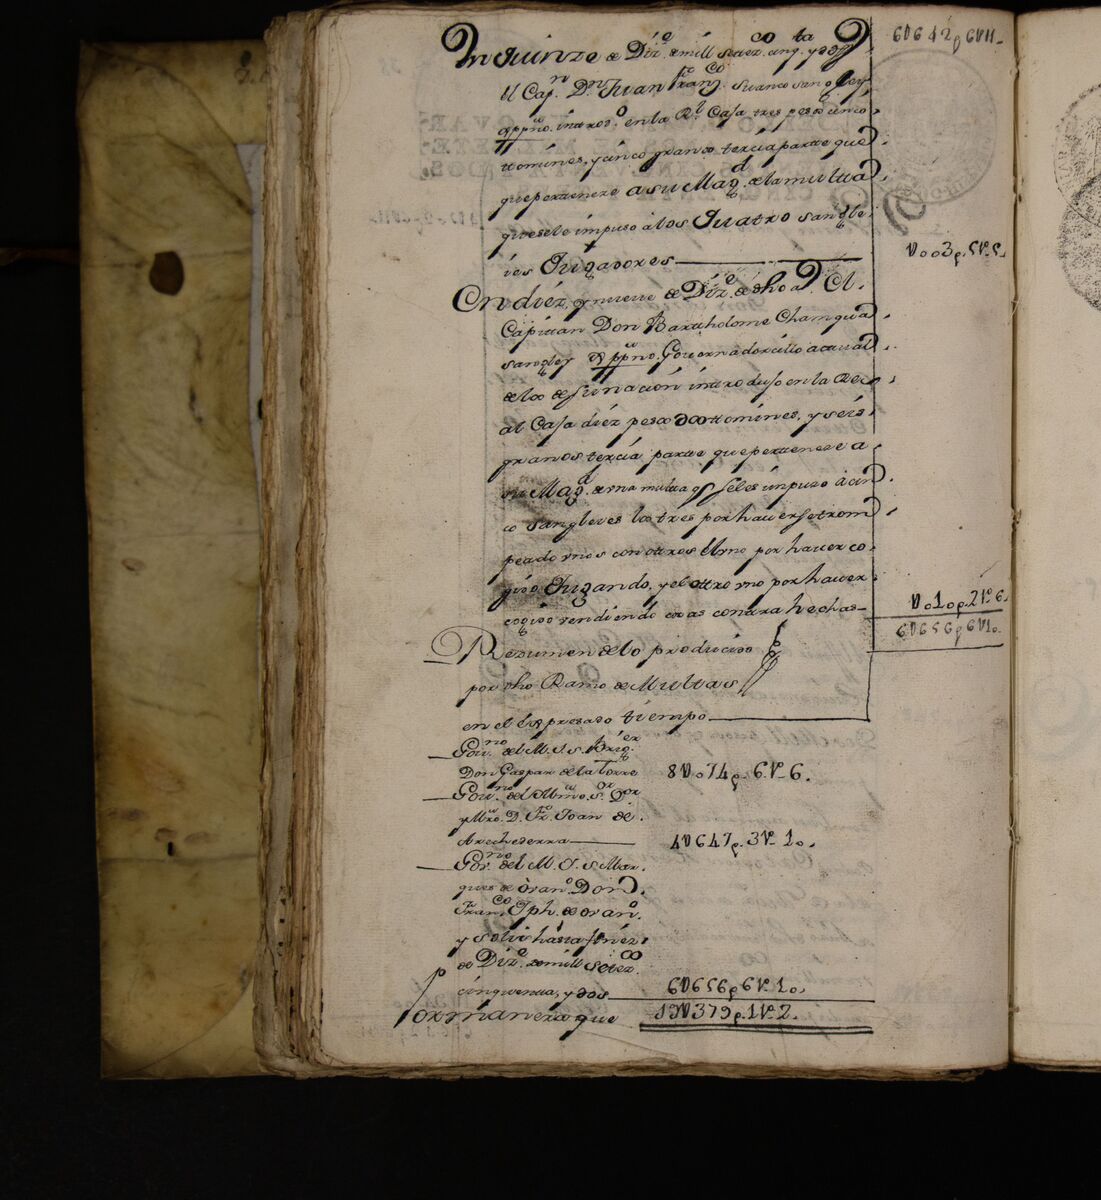 6U642p6U11.
En Quinze de Diz.e de mill setez.cos cinq.ta y dos
el Cap.n D.n Juan Fran.co Suanco sangley
xppno. introd.o en la R.l Caja tres pesos cinco
ttomines, y cinco granos tercia parte que
que perteneze a su Mag.d de la multa
que se le impuso a los Quatro sangle-
ies Jugadores
U003p.5U.5.
En diéz, y nueve de Diz.e de dho a.o El
Capittan Don Bartholome Chamqua
sangley xppno. Governadorcillo actual
de los de su nación introdujo en la Re-
al Caja diéz pesos dos ttomines, y seis
granos tercia parte que pertenese a
su Mag.d de una multa q.e se les impuso a cin
co sangleyes los tres por haverse trom
peado unos con ottros Uno por haver co-
gido Jugando, y el ottro uno por haver
cogido vendiendo cosas contra hechas
U010p.2U.6.
6U656p6U10.
Rezumen de lo producido
por dho Ramo de Multas
en el Expresado tiempo
Gov.no del M. I. S. Brig.er
Don Gaspar de la Torre 8U074p.6U.6.
Gov.no del Illmo. S.or D.or
y Mro. D. Fr. Joan de
Arechederra 4U647p.3U.10.
Gov.no del M. I. S. Mar-
ques de ovan.o Don
Fran.co Jph. de ovan.o
y Solis hasta fin
de Diz.e de mill setez.cos
cinquenta, y dos 6U656p6U.10.
forma manera que 19U379p.1U.2.